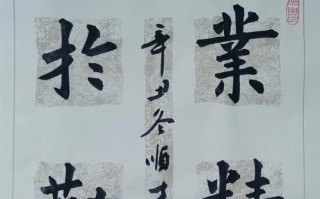 業精
於勤
辛丑冬順